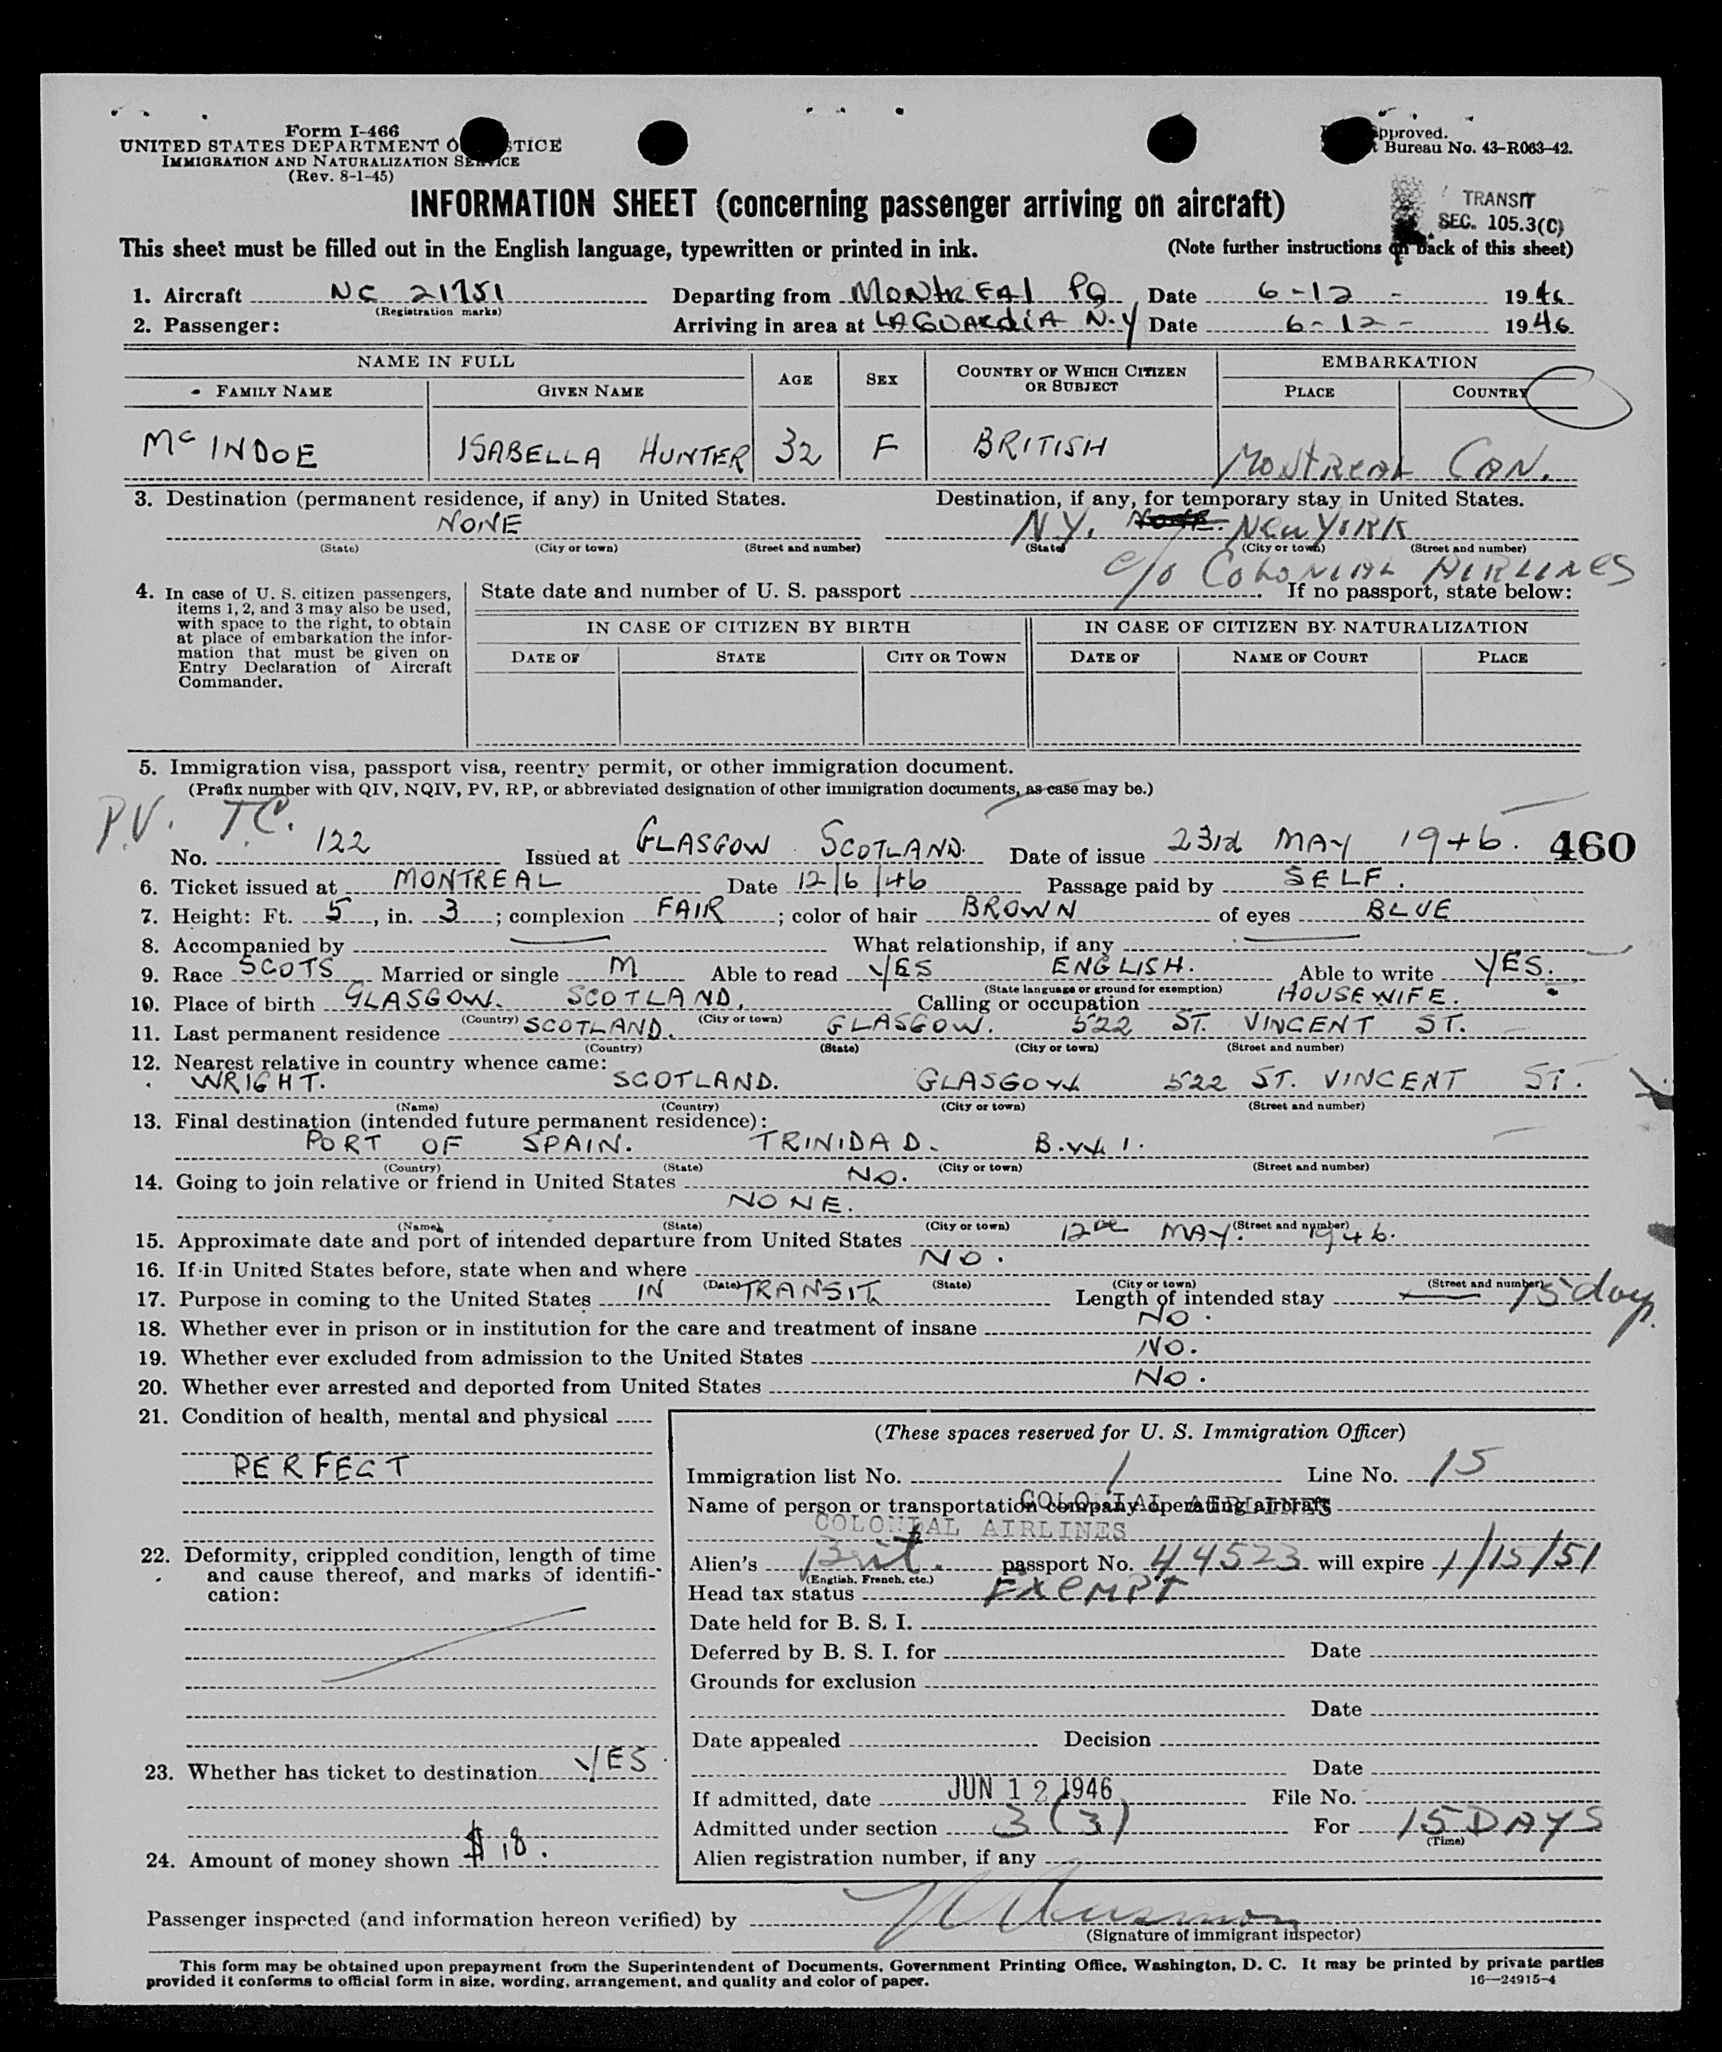 Form I-466
UNITED STATES DEPARTMENT O STICE
IMMIGRATION AND NATURALIZATION SERVICE
(Rev. 8-1-45)
pproved.
t Bureau No. 43-R063-42.
INFORMATION SHEET (concerning passenger arriving on aircraft)
TRANSIT
SEC. 105.3(C)
This sheet must be filled out in the English language, typewritten or printed in ink. (Note further instructions on back of this sheet)
1. Aircraft NC 21751 Departing from MONTREAL PQ Date 6-12- 1946
(Registration marks)
2. Passenger: Arriving in area at LAGUARDIA N.Y Date 6-12- 1946
NAME IN FULL AGE SEX COUNTRY OF WHICH CITIZEN OR SUBJECT EMBARKATION
FAMILY NAME GIVEN NAME PLACE COUNTRY
McINDOE ISABELLA HUNTER 32 F BRITISH MONTREAL CAN.
3. Destination (permanent residence, if any) in United States. Destination, if any, for temporary stay in United States.
NONE N.Y. NEW YORK
(State) (City or town) (Street and number) (State) (City or town) (Street and number)
c/o COLONIAL AIRLINES
4. In case of U. S. citizen passengers, items 1, 2, and 3 may also be used, with space to the right, to obtain at place of embarkation the information that must be given on Entry Declaration of Aircraft Commander.
State date and number of U. S. passport . If no passport, state below:
IN CASE OF CITIZEN BY BIRTH IN CASE OF CITIZEN BY NATURALIZATION
DATE OF STATE CITY OR TOWN DATE OF NAME OF COURT PLACE
5. Immigration visa, passport visa, reentry permit, or other immigration document.
(Prefix number with QIV, NQIV, PV, RP, or abbreviated designation of other immigration documents, as case may be.)
P.V. T.C.
No. 122 Issued at GLASGOW SCOTLAND. Date of issue 23rd MAY 1946. 460
6. Ticket issued at MONTREAL Date 12/6/46 Passage paid by SELF.
7. Height: Ft. 5, in. 3; complexion FAIR; color of hair BROWN of eyes BLUE
8. Accompanied by — What relationship, if any —
9. Race SCOTS Married or single M Able to read YES ENGLISH. Able to write YES.
(State language or ground for exemption)
10. Place of birth GLASGOW. SCOTLAND. Calling or occupation HOUSEWIFE.
(Country) (City or town)
11. Last permanent residence SCOTLAND. GLASGOW. 522 ST. VINCENT ST.
(Country) (State) (City or town) (Street and number)
12. Nearest relative in country whence came:
WRIGHT. SCOTLAND. GLASGOW 522 ST. VINCENT ST.
(Name) (Country) (City or town) (Street and number)
13. Final destination (intended future permanent residence):
PORT OF SPAIN. TRINIDAD. B.W.I.
(Country) (State) (City or town) (Street and number)
14. Going to join relative or friend in United States NO.
NONE.
(Name) (State) (City or town) (Street and number)
15. Approximate date and port of intended departure from United States 12 MAY. 1946.
16. If in United States before, state when and where NO.
(Date) (State) (City or town) (Street and number)
17. Purpose in coming to the United States IN TRANSIT Length of intended stay — 15 days.
18. Whether ever in prison or in institution for the care and treatment of insane NO.
19. Whether ever excluded from admission to the United States NO.
20. Whether ever arrested and deported from United States NO.
21. Condition of health, mental and physical
PERFECT
22. Deformity, crippled condition, length of time and cause thereof, and marks of identification:
23. Whether has ticket to destination YES.
24. Amount of money shown $18.
(These spaces reserved for U. S. Immigration Officer)
Immigration list No. 1 Line No. 15
Name of person or transportation company operating aircraft COLONIAL AIRLINES
COLONIAL AIRLINES
Alien's Brit. passport No. 44523 will expire 1/15/51
(English, French, etc.)
Head tax status EXEMPT
Date held for B. S. I.
Deferred by B. S. I. for Date
Grounds for exclusion
Date
Date appealed Decision
Date
If admitted, date JUN 12 1946 File No.
Admitted under section 3(3) For 15 DAYS
(Time)
Alien registration number, if any
Passenger inspected (and information hereon verified) by
(Signature of immigrant inspector)
This form may be obtained upon prepayment from the Superintendent of Documents, Government Printing Office, Washington, D. C. It may be printed by private parties
provided it conforms to official form in size, wording, arrangement, and quality and color of paper. 16—24915-4